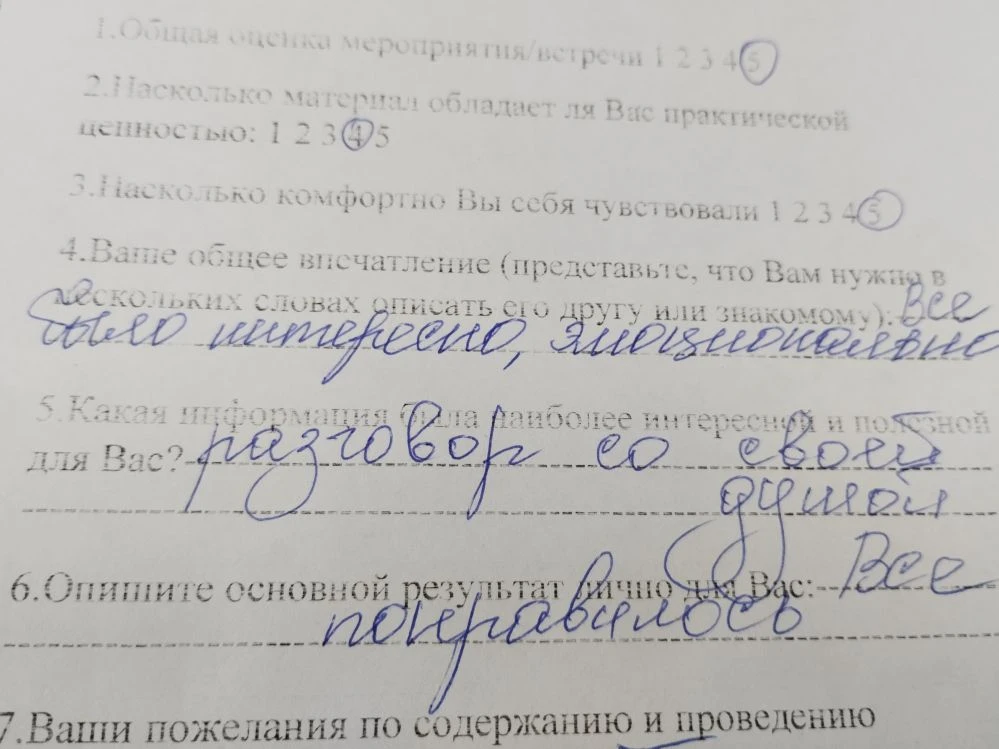 1.Общая оценка мероприятия/встречи 1 2 3 4 5
2.Насколько материал обладает ля Вас практической
ценностью: 1 2 3 4 5
3.Насколько комфортно Вы себя чувствовали 1 2 3 4 5
4.Ваше общее впечатление (представьте, что Вам нужно в
нескольких словах описать его другу или знакомому): Все
было интересно, эмоционально
5.Какая информация была наиболее интересной и полезной
для Вас? разговор со своей
душой
6.Опишите основной результат лично для Вас: Все
понравилось
7.Ваши пожелания по содержанию и проведению